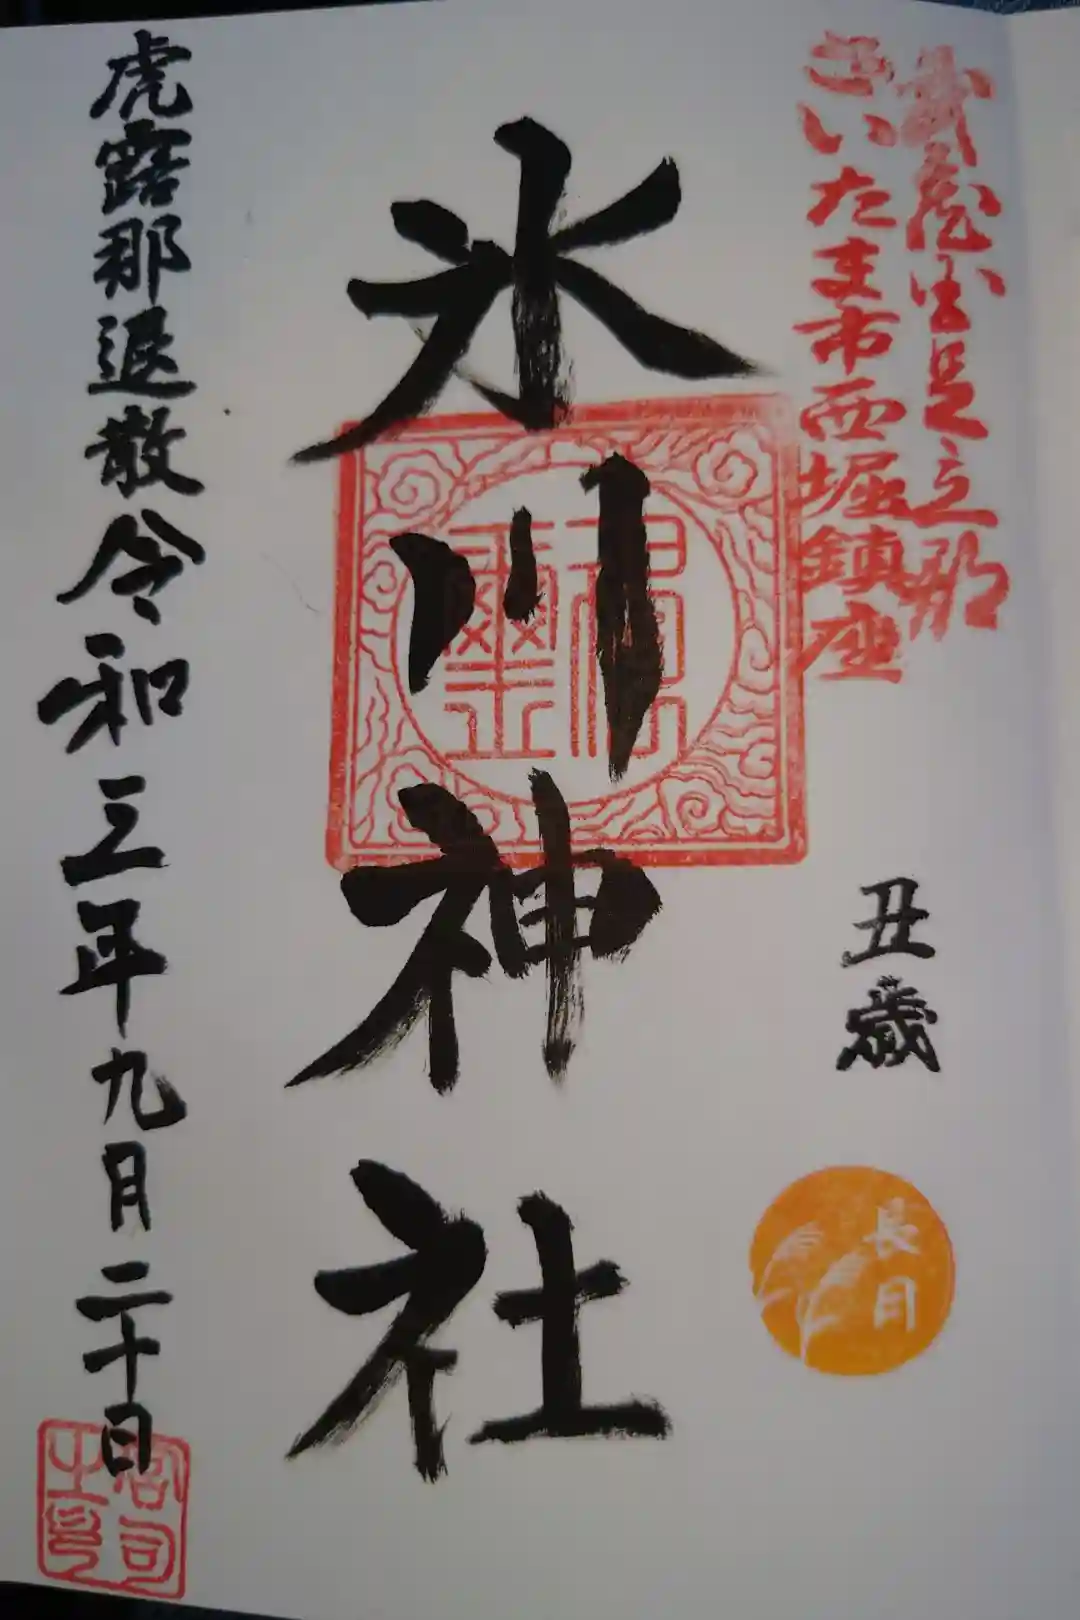 武蔵国足立郡
さいたま市西堀鎮座
丑歳
長月
氷川神社
福壐
虎露那退散令和三年九月二十日
宮司之印